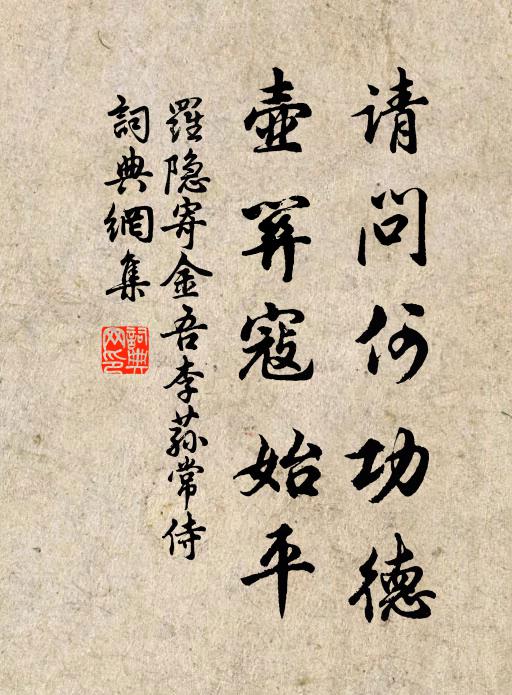 请问何功德
壶关寇始平
羅隐寄金吾李荪常侍
詞典網集
詞典网印